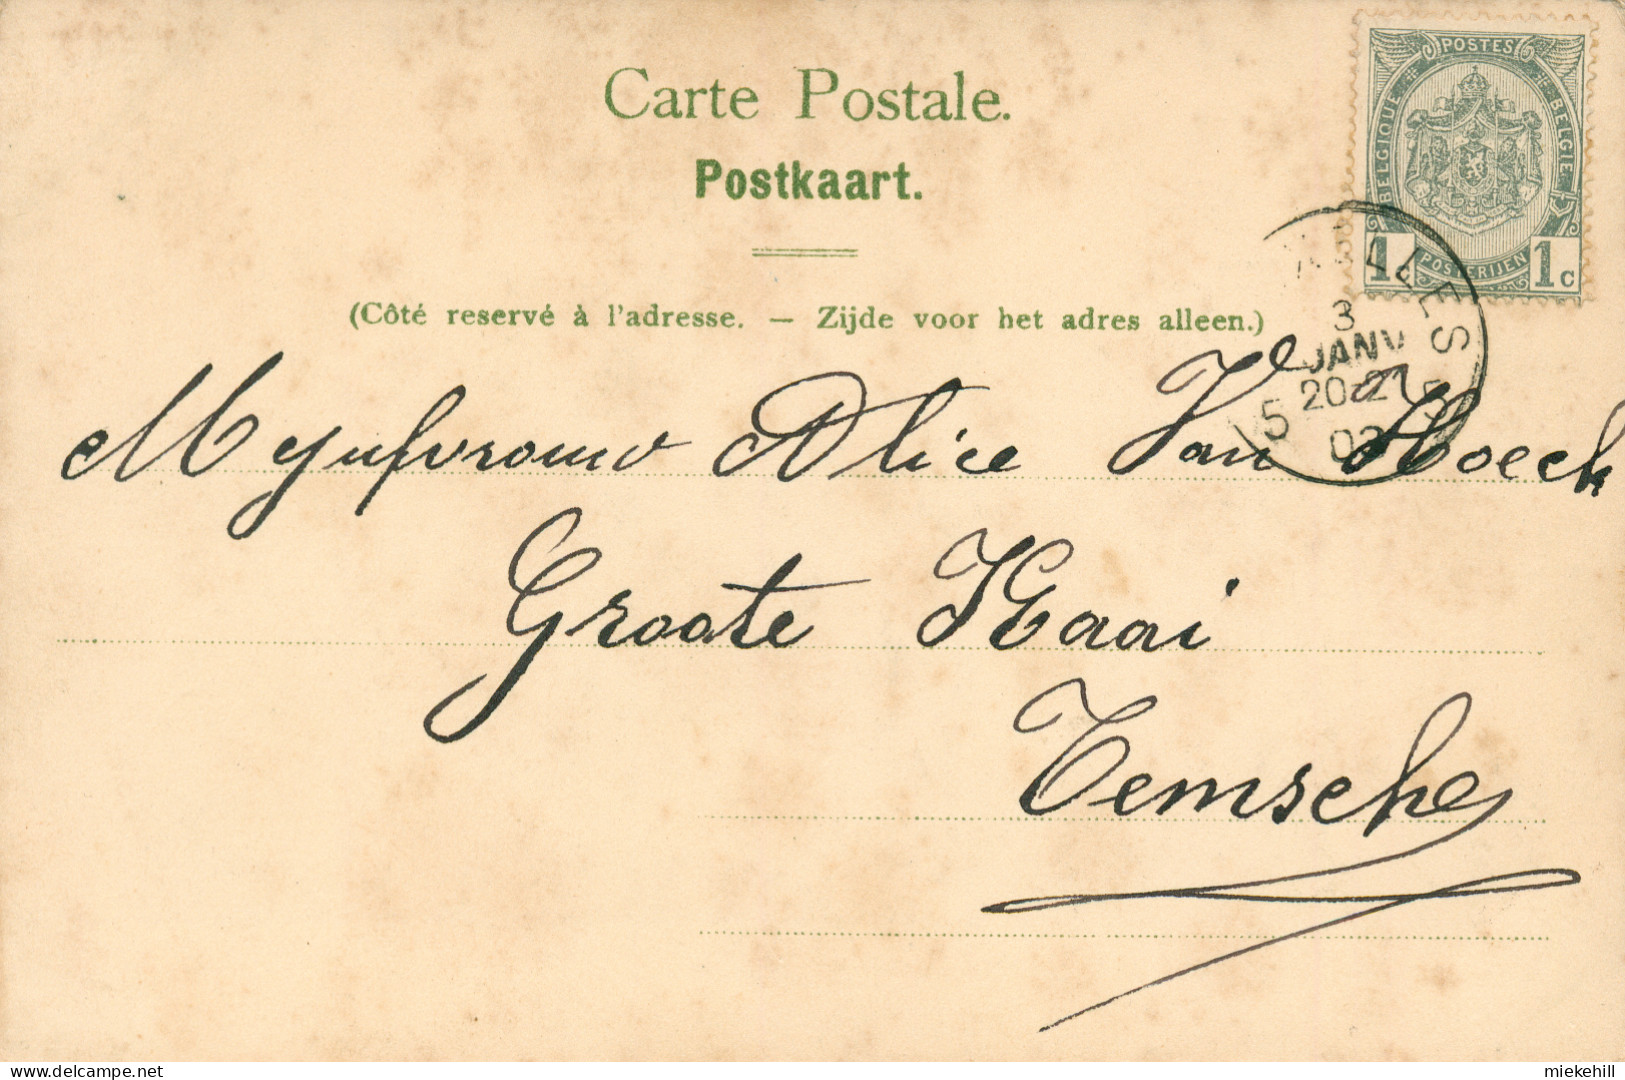 Carte Postale.
Postkaart.
(Côté reservé à l'adresse. — Zijde voor het adres alleen.)
POSTES
BELGIQUE
BELGIE
POSTERIJEN
1
1c
LLES
3
JANV
20-21
5
03
Mejufvrouw Alice Van Hoeck
Groote Kaai
Temsche
delcampe.net
miekehill